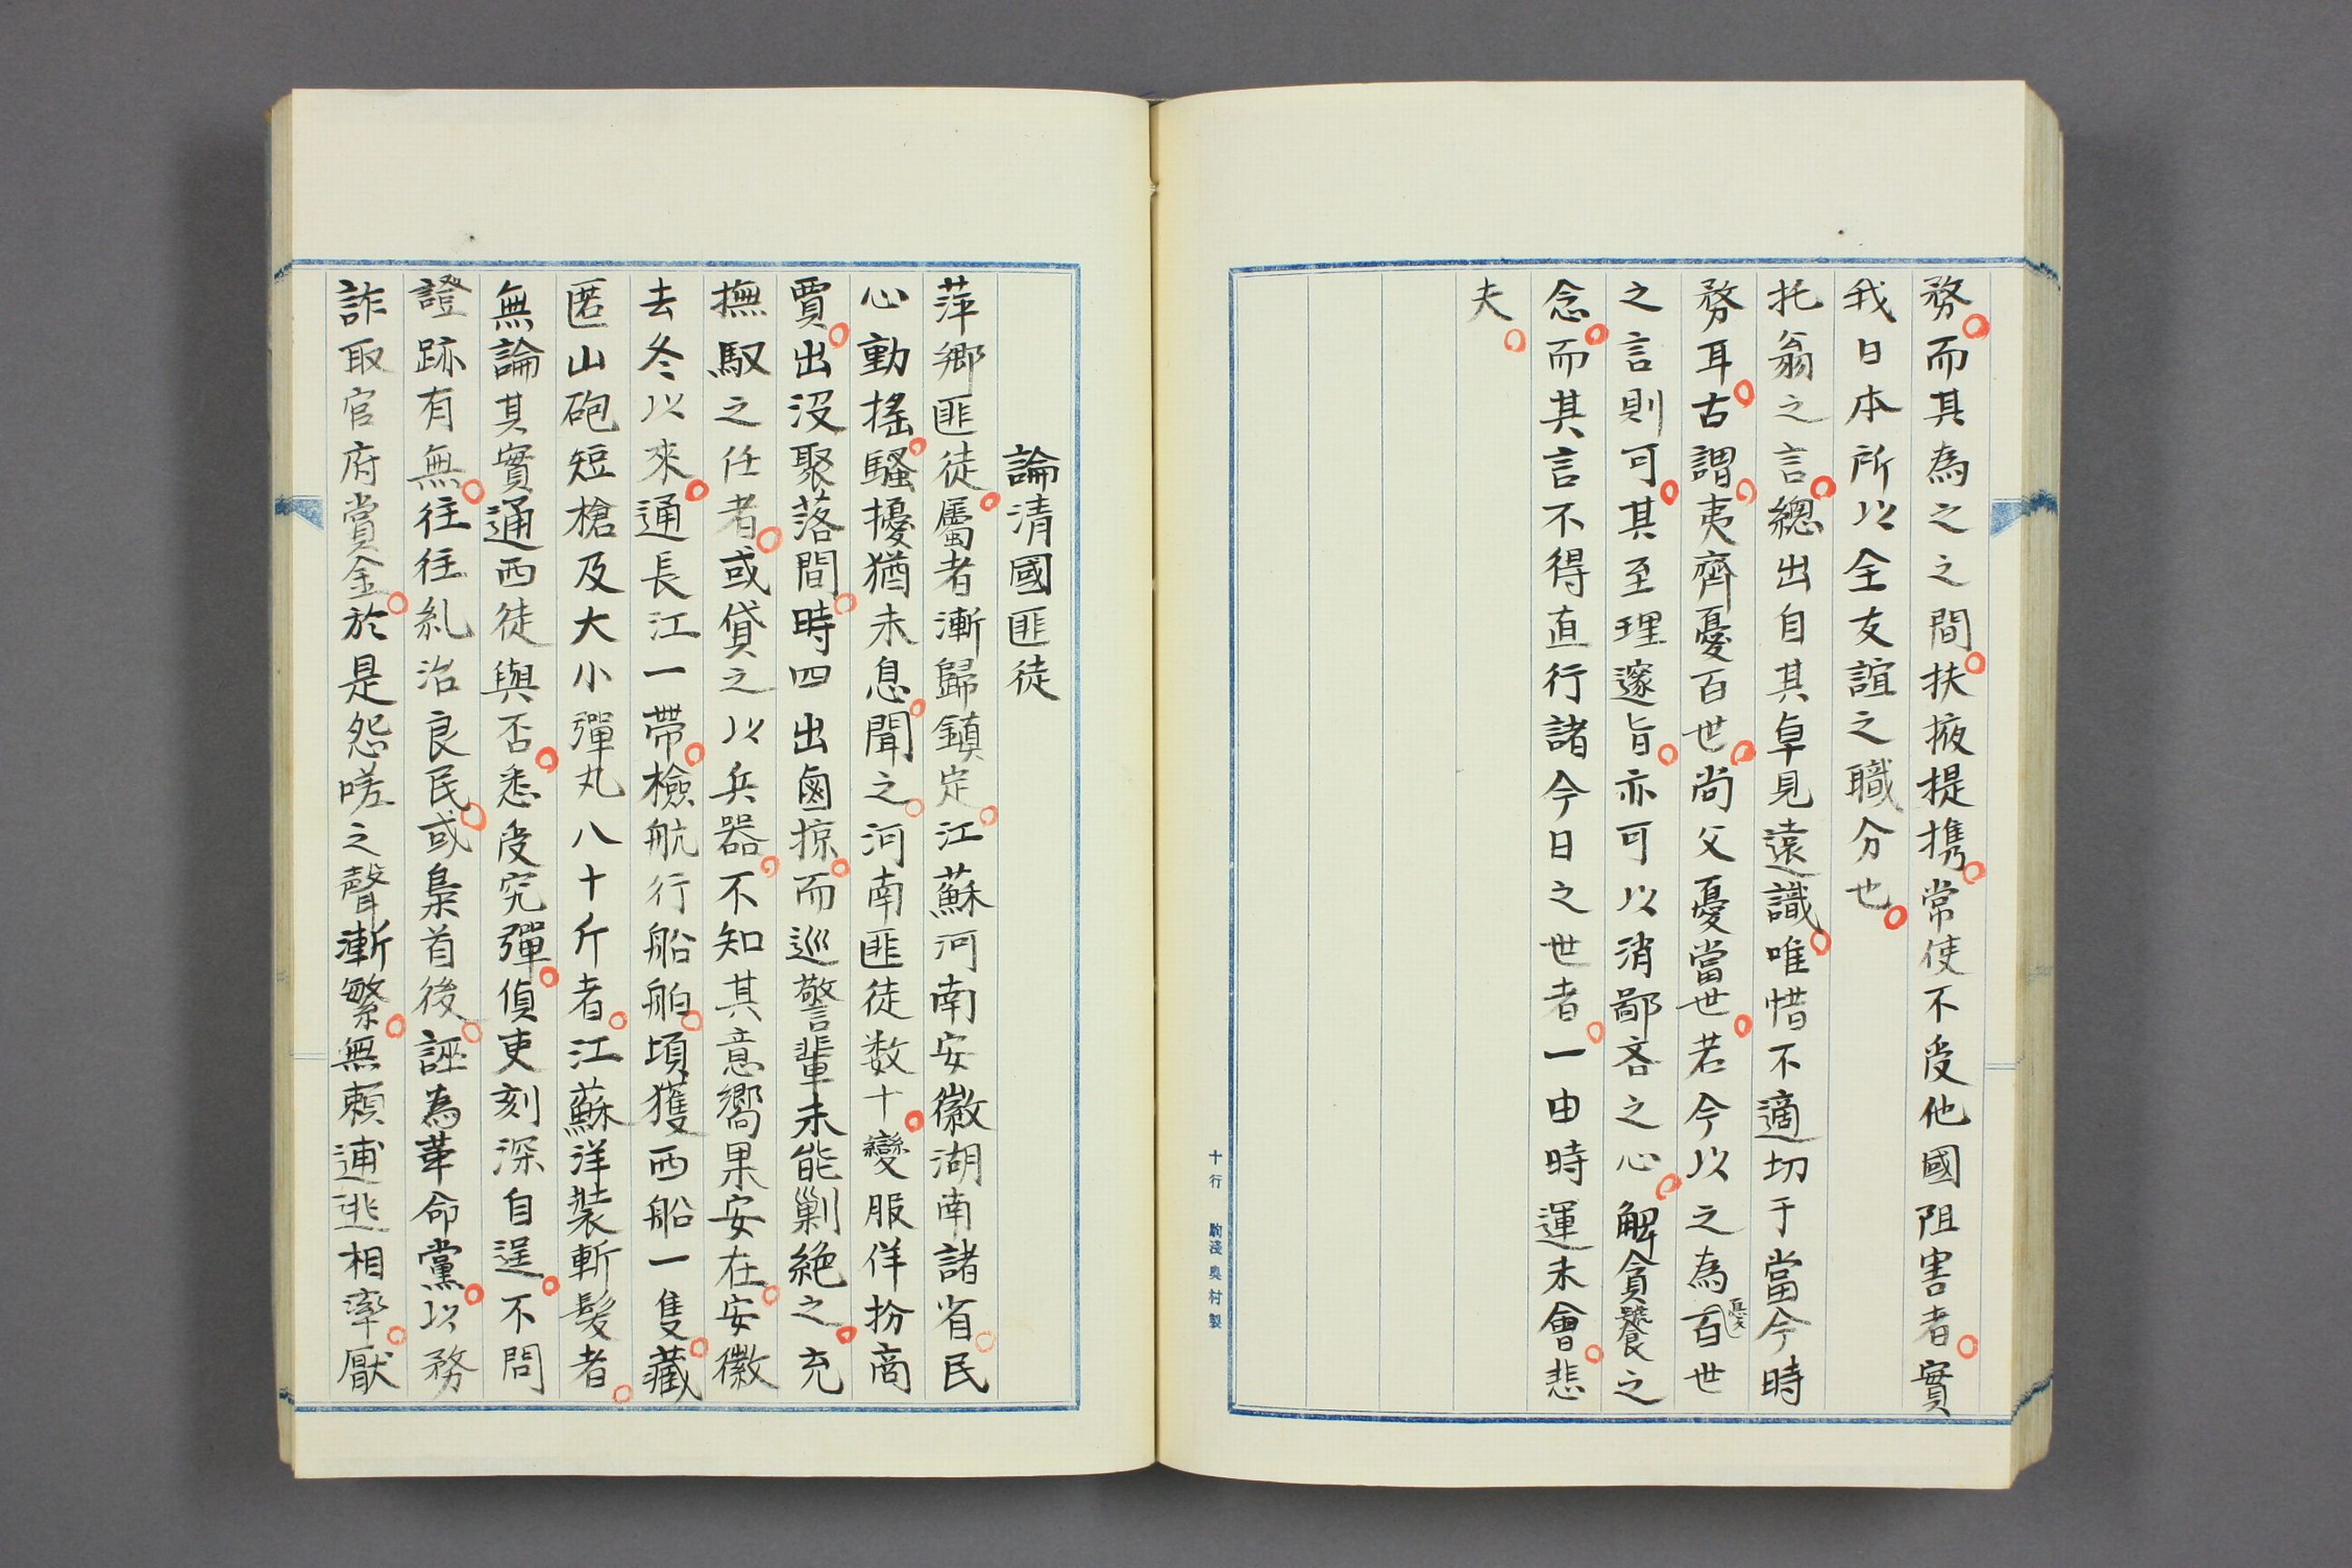 務。而其為之之間。扶掖提携。常使不受他國阻害者。實
我日本所以全友誼之職分也。
托翁之言。總出自其卓見遠識。唯惜不適切于當今時
務耳。古謂。夷齊憂百世。尚父憂當世。若今以之為憂百世
之言則可。其至理邃旨。亦可以消鄙吝之心。解貪饕之
念。而其言不得直行諸今日之世者。一由時運未會。悲
夫。
十行 駒淺奥村製
論清國匪徒
萍鄉匪徒。屬者漸歸鎮定。江蘇河南安徽湖南諸省。民
心動搖。騷擾猶未息。聞之。河南匪徒数十。變服佯扮商
賈。出沒聚落間。時四出鹵掠。而巡警輩未能剿絶之。充
撫馭之任者。或貸之以兵器。不知其意嚮果安在。安徽
去冬以來。通長江一帶。檢航行船舶。頃獲西船一隻。藏
匿山砲短槍及大小彈丸八十斤者。江蘇洋裝斬髮者。
無論其實通西徒與否。悉受究彈。偵吏刻深自逞。不問
證跡有無。往往糺治良民。或梟首後。誣為革命黨。以務
詐取官府賞金。於是怨嗟之聲漸繁。無賴逋逃相率。厭